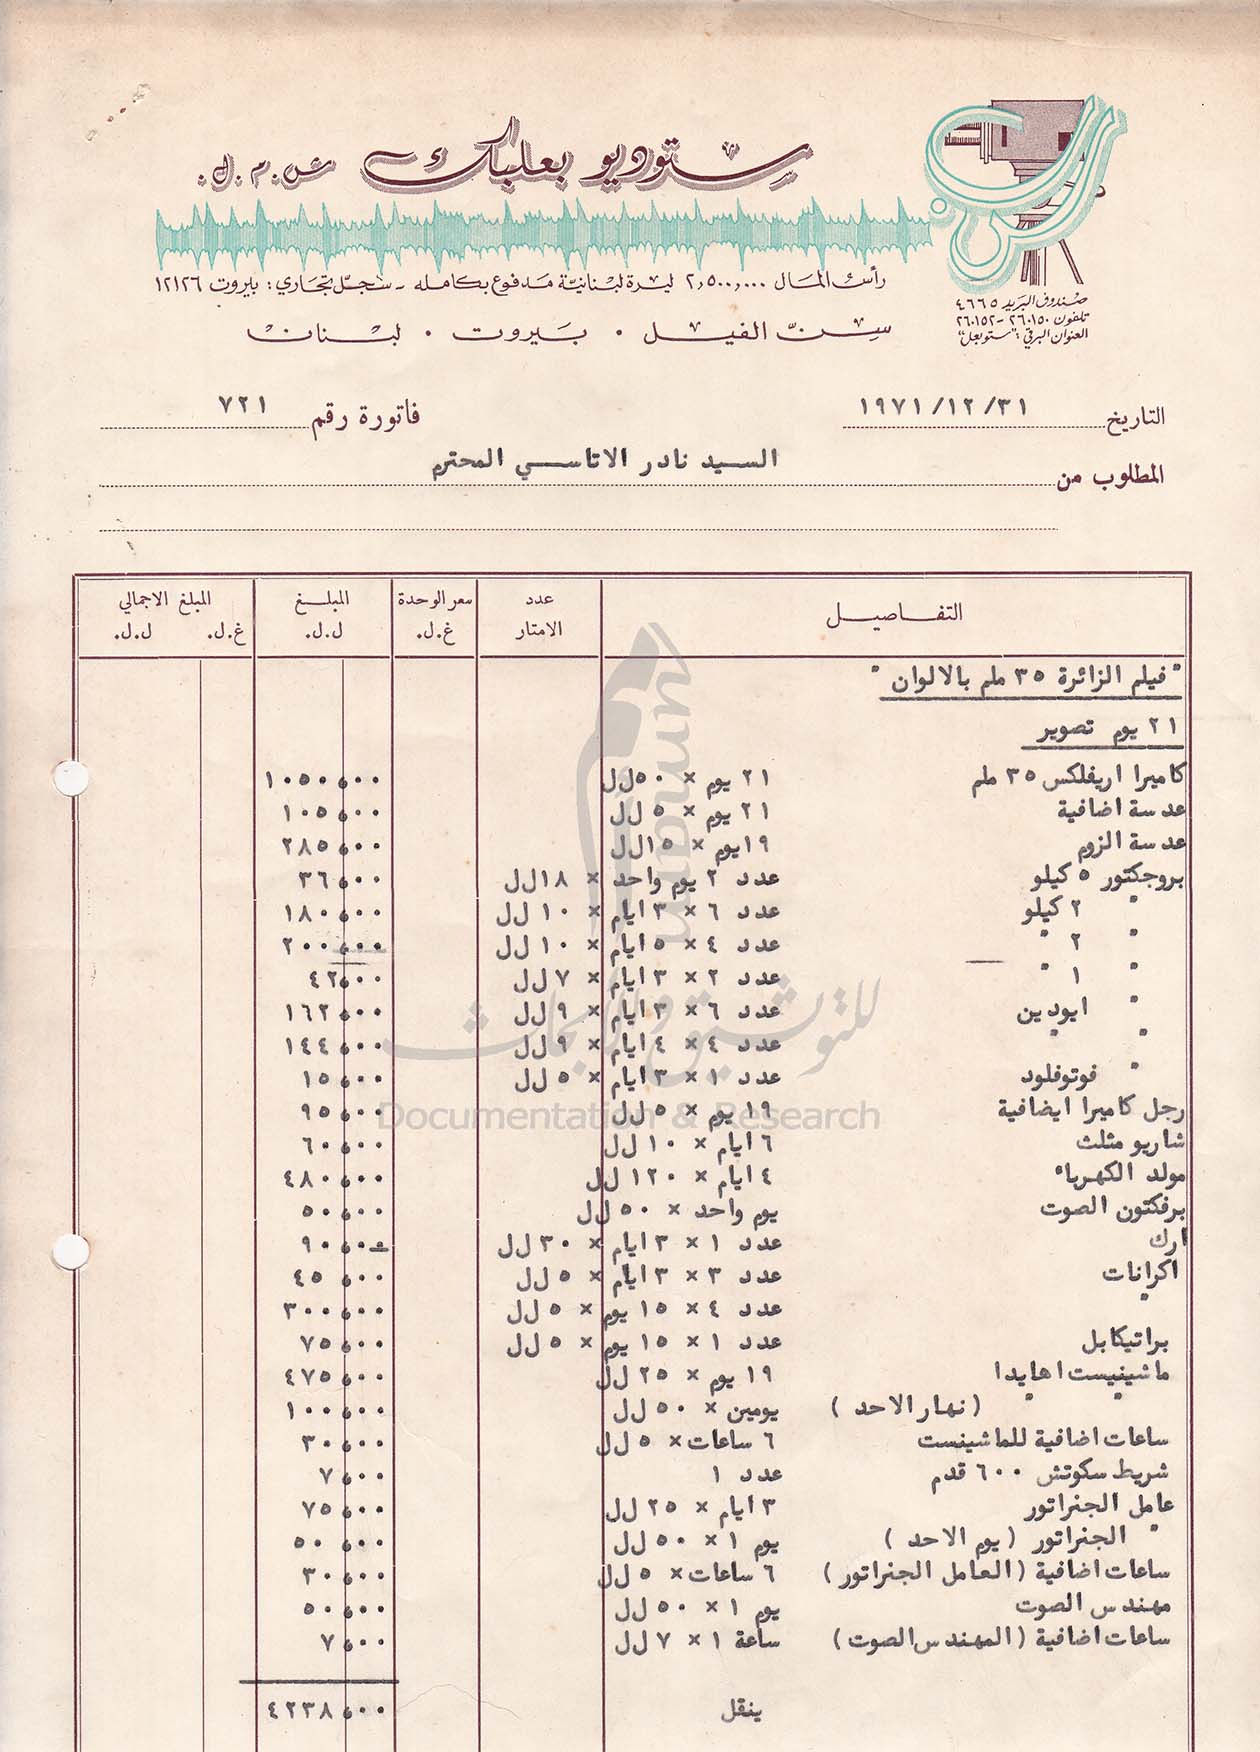 ستوديو بعلبك ش.م.ل.
رأس المال ٢,٥٠٠,٠٠٠ ليرة لبنانية مدفوع بكامله - سجل تجاري: بيروت ١٢١٢٦
سن الفيل ٠ بيروت ٠ لبنان
صندوق البريد ٤٦٦٥
تلفون ٢٦٠١٥٠ - ٢٦٠١٥٢
العنوان البرقي: "ستوبعل"
التاريخ ١٩٧١/١٢/٣١ فاتورة رقم ٧٢١
المطلوب من السيد نادر الاتاسي المحترم
التفاصيل عدد الامتار سعر الوحدة غ.ل. المبلغ ل.ل. المبلغ الاجمالي غ.ل. ل.ل.
" فيلم الزائرة ٣٥ ملم بالالوان "
٢١ يوم تصوير
كاميرا اريفلكس ٣٥ ملم ٢١ يوم × ٥٠ ل ل ١٠٥٠،٠٠
عدسة اضافية ٢١ يوم × ٥ ل ل ١٠٥،٠٠
عدسة الزوم ١٩ يوم × ١٥ ل ل ٢٨٥،٠٠
بروجكتور ٥ كيلو عدد ٢ يوم واحد × ١٨ ل ل ٣٦،٠٠
" ٢ كيلو عدد ٦ × ٣ ايام × ١٠ ل ل ١٨٠،٠٠
" ٢ " عدد ٤ × ٥ ايام × ١٠ ل ل ٢٠٠،٠٠
" ١ " عدد ٢ × ٣ ايام × ٧ ل ل ٤٢،٠٠
" ايودين عدد ٦ × ٣ ايام × ٩ ل ل ١٦٢،٠٠
" " عدد ٤ × ٤ ايام × ٩ ل ل ١٤٤،٠٠
" فوتوفلود عدد ١ × ٣ ايام × ٥ ل ل ١٥،٠٠
رجل كاميرا ايضافية ١٩ يوم × ٥ ل ل ٩٥،٠٠
شاريو مثلث ٦ ايام × ١٠ ل ل ٦٠،٠٠
مولد الكهرباء ٤ ايام × ١٢٠ ل ل ٤٨٠،٠٠
برفكتون الصوت يوم واحد × ٥٠ ل ل ٥٠،٠٠
ارك عدد ١ × ٣ ايام × ٣٠ ل ل ٩٠،٠٠
اكرانات عدد ٣ × ٣ ايام × ٥ ل ل ٤٥،٠٠
" عدد ٤ × ١٥ يوم × ٥ ل ل ٣٠٠،٠٠
براتيكابل عدد ١ × ١٥ يوم × ٥ ل ل ٧٥،٠٠
ماشينيست اهايدا ١٩ يوم × ٢٥ ل ل ٤٧٥،٠٠
" " (نهار الاحد) يومين × ٥٠ ل ل ١٠٠،٠٠
ساعات اضافية للماشينست ٦ ساعات × ٥ ل ل ٣٠،٠٠
شريط سكوتش ٦٠٠ قدم عدد ١ ٧،٠٠
عامل الجنراتور ٣ ايام × ٢٥ ل ل ٧٥،٠٠
" الجنراتور (يوم الاحد) يوم ١ × ٥٠ ل ل ٥٠،٠٠
ساعات اضافية (العامل الجنراتور) ٦ ساعات × ٥ ل ل ٣٠،٠٠
مهندس الصوت يوم ١ × ٥٠ ل ل ٥٠،٠٠
ساعات اضافية (المهندس الصوت) ساعة ١ × ٧ ل ل ٧،٠٠
ينقل ٤٢٣٨،٠٠
umam
للتوثيق والأبحاث
Documentation & Research